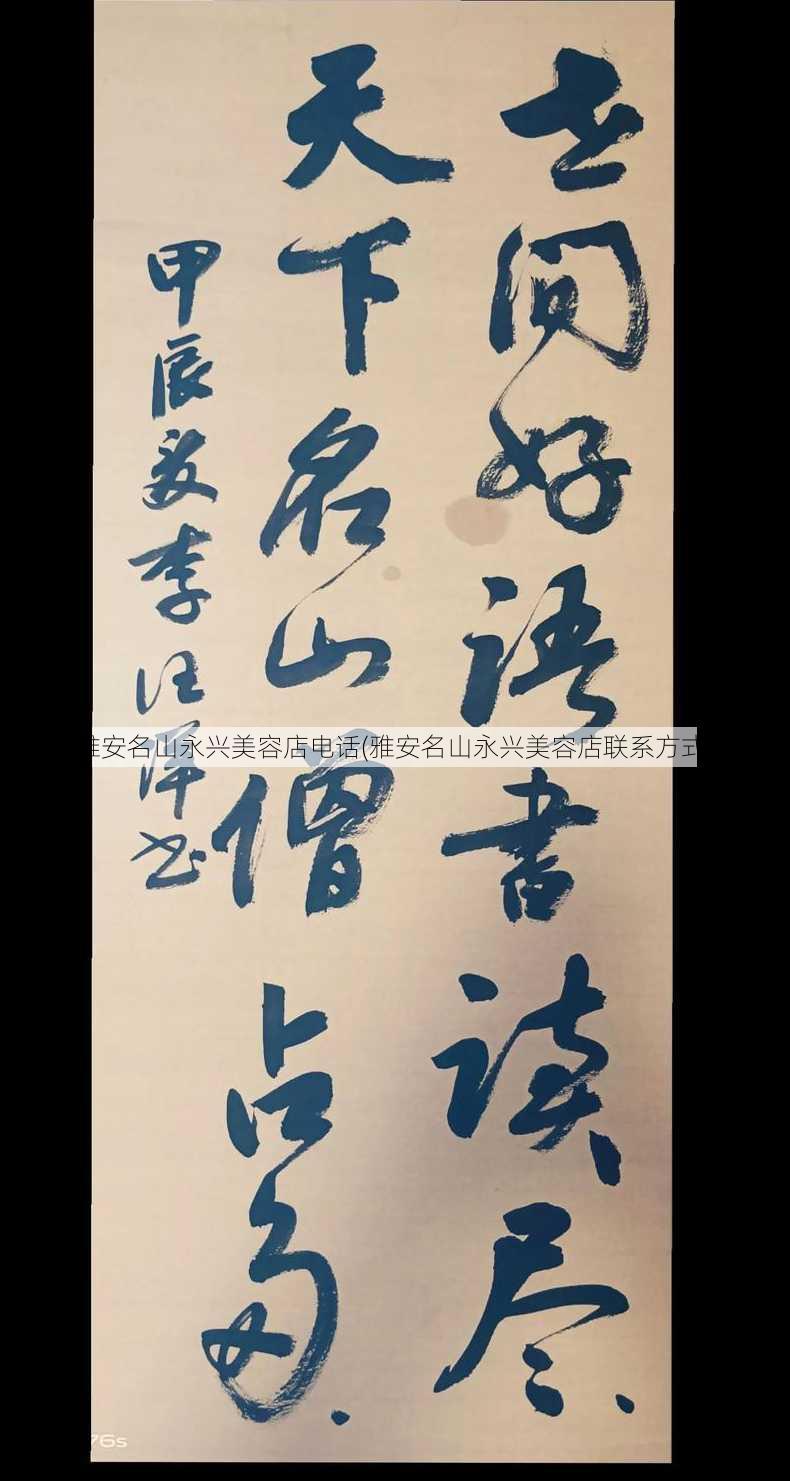 世间好语书读尽
天下名山僧占多
甲辰夏李汪洋书
雅安名山永兴美容店电话(雅安名山永兴美容店联系方式
76s